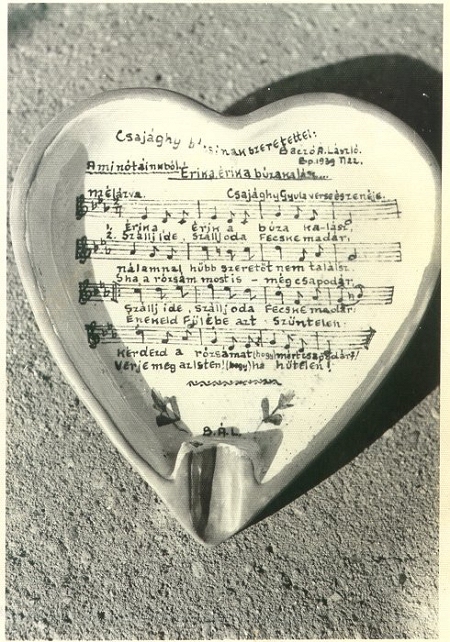 Csajághy szeretettel:
Baczó A. László.
Bp. 1939
A mi nótáinkból:
Erika, erika búzakalász....
mélázva. Csajághy Gyula verse és zenéje.
1. Erika, Erika búza ka-lász,
2. Szállj ide, Szállj oda Fecske madár,
nálamnál hübb szeretőt nem találsz
S ha a rózsám most is - még csapodár.
Szállj ide, Szállj oda Fecske madár
Énekeld Fülébe azt Szüntelen:
Kérdezd a rózsámat (hogy) mért csapodár?!
Verje meg az Isten! (hogy) ha hűtelen!
B.Á.L.